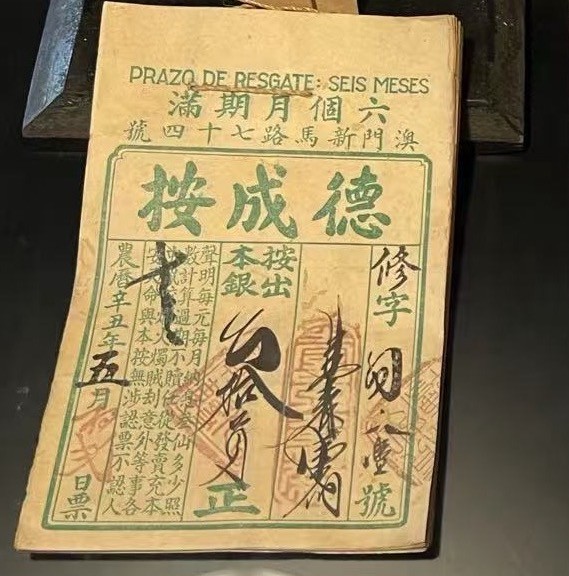 PRAZO DE RESGATE: SEIS MESES
六個月期滿
澳門新馬路七十四號
德成按
修字
號
按出
本銀
拾員正
聲明每元每月納仙多少照
數計算過期不贖任從發賣充本
火燭賊刼意外等事各
安天命與本按無涉認票不認人
農曆辛丑年五月日票